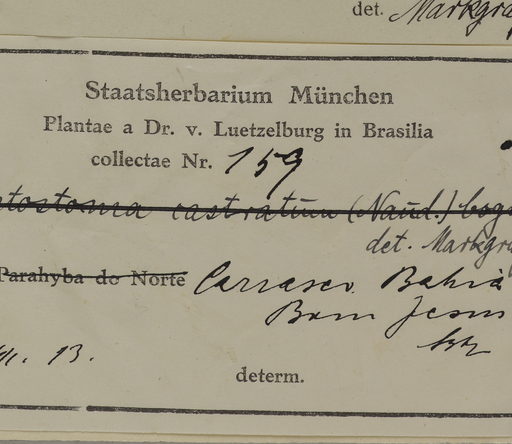 det. Markgra
Staatsherbarium München
Plantae a Dr. v. Luetzelburg in Brasilia
collectae Nr. 159
tostoma castratum (Naud.) Cogn
det. Markgra
Parahyba do Norte Carrasco. Bahia
Bom Jesus
13.
determ.